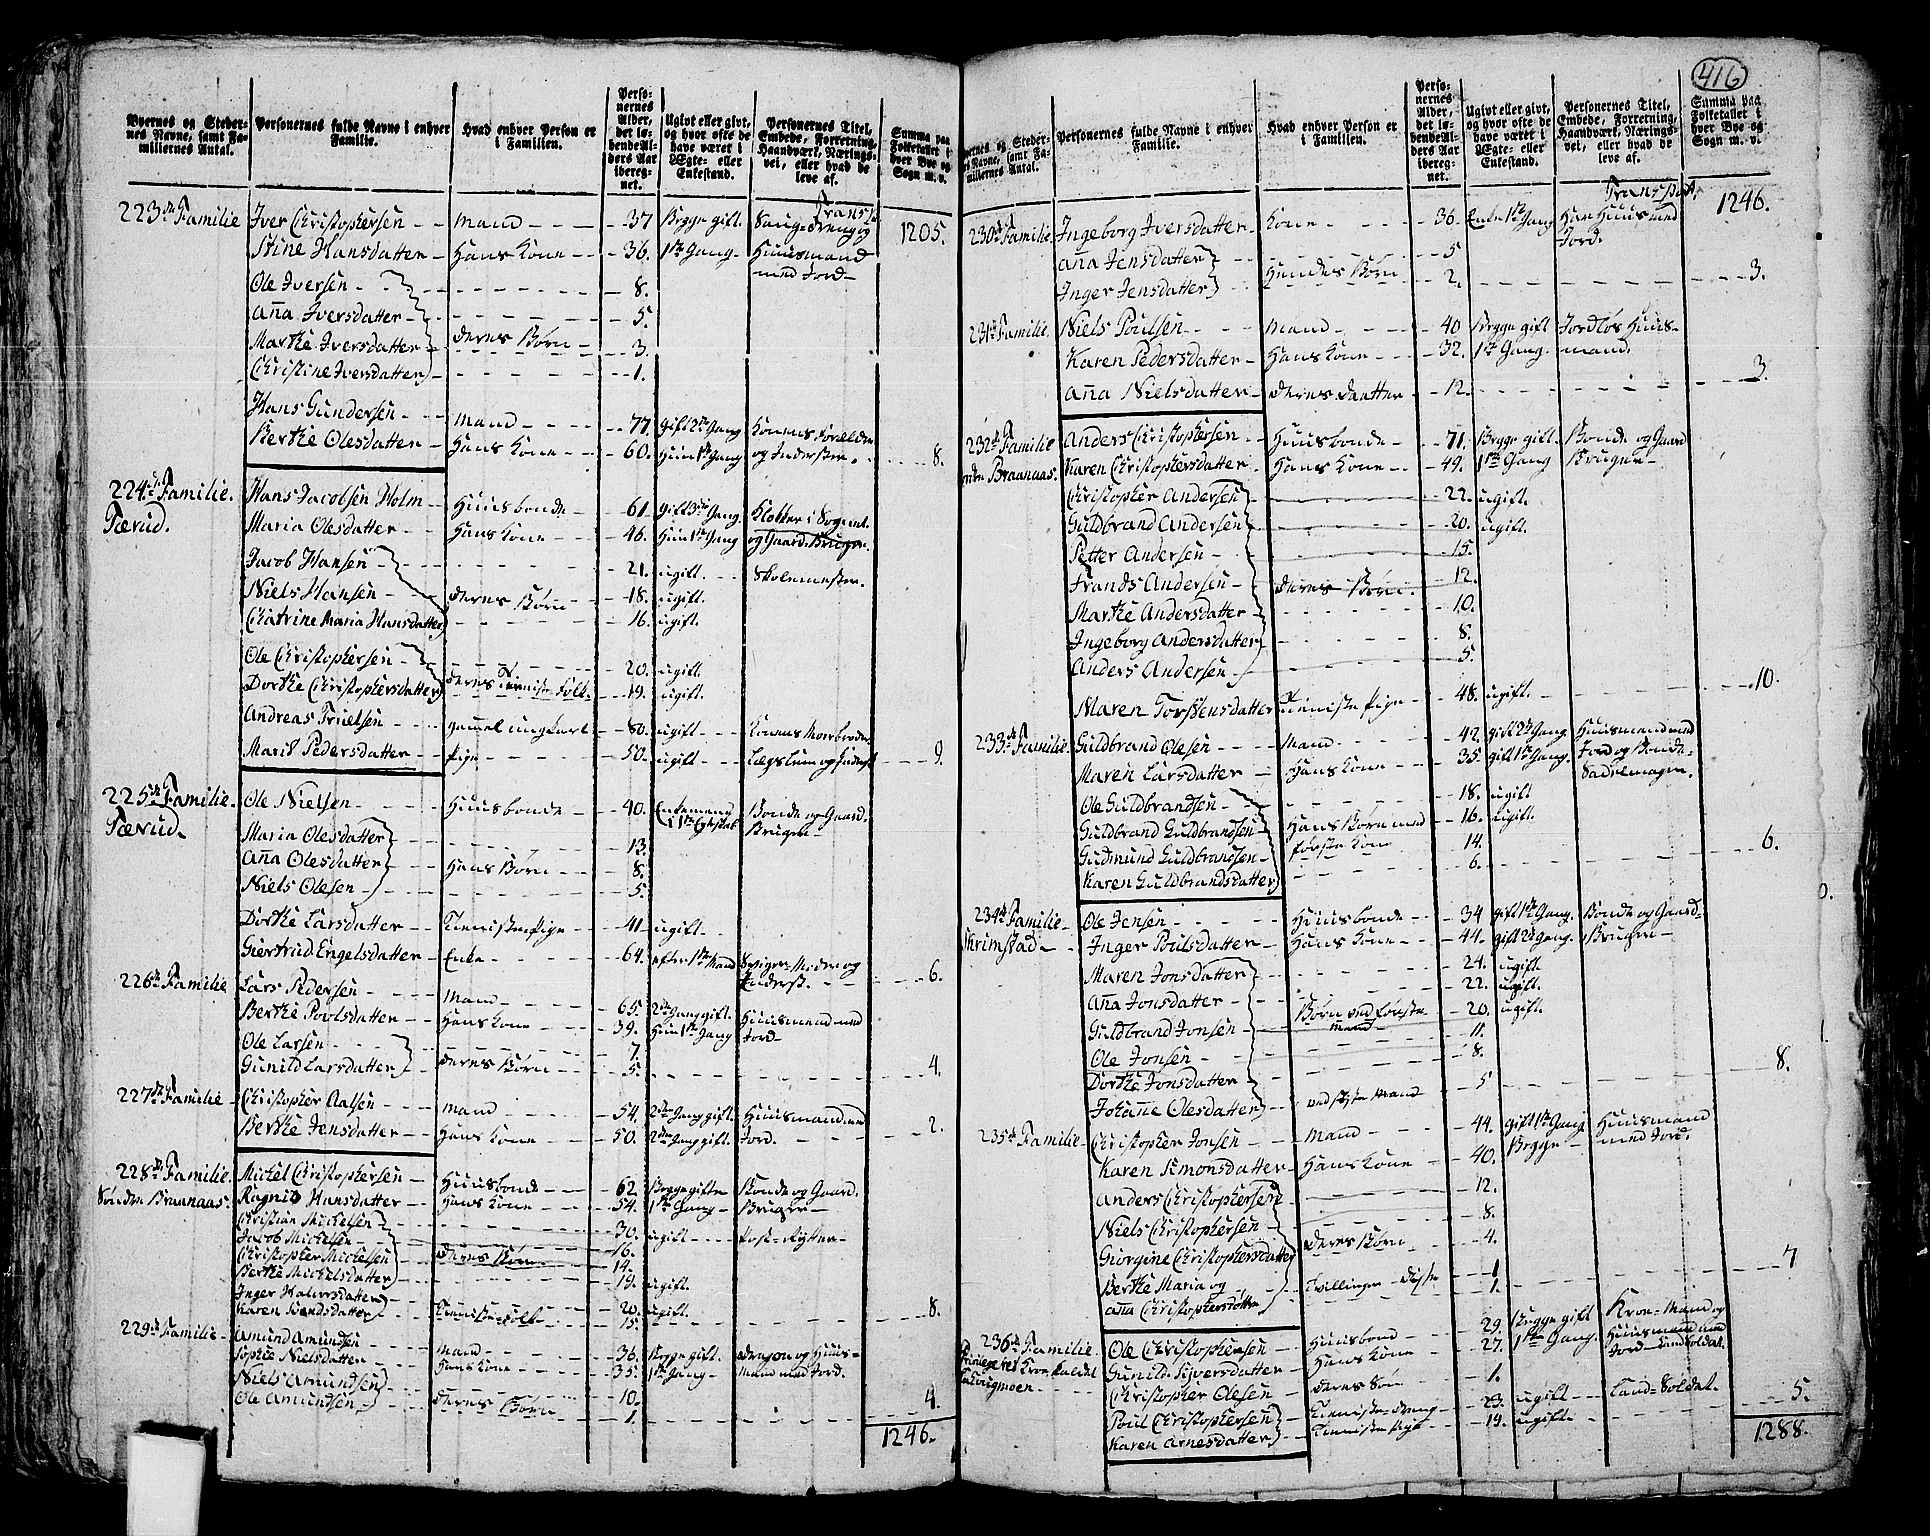 416
Byernes og Stedernes Navne, samt Familiernes Antal. | Personernes fulde Navne i enhver Familie. | Hvad enhver Person er i Familien. | Personernes Alder, det løbende Alders Aar iberegnet. | Ugivt eller givt, og hvor ofte de have været i Ægte- eller Enkestand. | Personernes Titel, Embede, Forretning, Haandværk, Næringsvei, eller hvad de leve af. | Summa paa Folketallet i hver Bye og Sogn m. v.
Transp. 1205.
223de Familie Iver Christophersen mand 37 Begge gift
Stine Hansdatter Hans Kone 36. 1ste Gang Huusmand med Jord
Ole Iversen 8.
Anna Iversdatter 5.
Marthe Iversdatter deres Børn 3.
Christine Iversdatter 1.
Hans Gundersen mand 77 gift 2den Gang Konens Forældre
Berthe Olesdatter Hans Kone 60. Hun 1ste Gang og Inderster 8.
224de Familie. Hans Jacobsen Holm Huusbonde 61 gift 3die Gang. Klokker i Sognet
Tærud. Maria Olesdatter Hans Kone 46. Hun 1ste Gang og Gaard-Bruger.
Jacob Hansen 21. ugift. Skolemester.
Niels Hansen deres Børn 18. ugift.
Chatrine Maria Hansdatter 16. ugift.
Ole Christophersen 20. ugift.
Dorthe Christophersdatter deres Tieniste Folk 19. ugift.
Andreas Truelsen gammel ungkarl 80. ugift Konens Morbroder
Marit Pedersdatter Pige 50. ugift Lægslem og Inderst 9.
225de Familie Ole Nielsen Huusbonde 40. Enkemand i 1ste Egteskab Bonde og Gaard-Bruger
Tærud. Maria Olesdatter 13.
Anna Olesdatter Hans Børn 8.
Niels Olesen 5.
Dorthe Larsdatter Tienistepige 41 ugift
Giertrud Engelsdatter Enke 64. efter 1ste Mand Sviger-Moder og Inderst. 6.
226de Familie Lars Pedersen mand 65. 2den Gang gift.
Berthe Povlsdatter Hans Kone 39. Hun 1ste Gang Huusmand med Jord
Ole Larsen 7.
Gunild Larsdatter deres Børn 5. 4.
227de Familie Christopher Aalsen mand 54. 2den Gang gift. Huusmand med
Berthe Jensdatter Hans Kone 50. 2den Gang gift. Jord. 2.
228de Familie. Michel Christophersen Huusbonde 62. Begge gifte Bonde og Gaard
Sønden Braanaas. Ragnild Hansdatter Hans Kone 54. 1ste Gang Bruger
Christian Michelsen 30.
Jacob Michelsen 16. ugift Post-Rytter
Christopher Michelsen deres Børn 14.
Berthe Michelsdatter 19. ugift.
Inger Halvorsdatter 20. ugift.
Karen Svendsdatter Tieniste-Folk 15. 8.
229de Familie Amund Amundsen mand 36. Begge gift. Dragon og Huus-
Sophie Nielsdatter Hans Kone 35. 1ste Gang mand med Jord.
Niels Amundsen deres Børn 10.
Ole Amundsen 1. 4.
1246.
Byernes og Stedernes Navne, samt Familiernes Antal. | Personernes fulde Navne i enhver Familie. | Hvad enhver Person er i Familien. | Personernes Alder, det løbende Alders Aar iberegnet. | Ugivt eller givt, og hvor ofte de have været i Ægte- eller Enkestand. | Personernes Titel, Embede, Forretning, Haandværk, Næringsvei, eller hvad de leve af. | Summa paa Folketallet i hver Bye og Sogn m. v.
Transport. 1246.
230de Familie. Ingeborg Iversdatter Kone 36. Enke 1ste Gang Har Huus med Jord.
Anna Jensdatter 5
Inger Jensdatter Hendes Børn 2. 3.
231te Familie. Niels Poulsen mand 40 Begge gift Jordløs Huus-
Karen Pedersdatter Hans Kone 32. 1ste Gang. mand.
Anna Nielsdatter deres Daatter 12. 3.
232de Familie Anders Christophersen Huusbonde 71. Begge gift. Bonde og Gaard
Braanaas. Karen Christophersdatter Hans Kone 49. 1ste Gang Bruger
Christopher Andersen 22. ugift.
Guldbrand Andersen 20. ugift.
Petter Andersen 15.
Frands Andersen deres Børn. 12.
Marthe Andersdatter 10.
Ingeborg Andersdatter 8.
Anders Andersen 5.
Maren Torstensdatter Tieniste Pige 48. ugift. 10.
233de Familie. Guldbrand Olesen Mand 42. gift 2den Gang Huusmand med
Maren Larsdatter Hans Kone 35. gift 1ste Gang. Jord og Bonde-Sadelmager.
Ole Guldbrandsen 18. ugift
Guldbrand Guldbrandsen Hans Børn med 16. ugift.
Gudmund Guldbrandsen første Kone 14.
Karen Guldbrandsdatter 6. 6.
234de Familie Ole Jensen Huusbonde 34 gift 1ste Gang. Bonde og Gaard-
Skrimstad Inger Poulsdatter Hans Kone 44. gift 2den Gang. Bruger
Maren Jonsdatter 24. ugift
Anna Jonsdatter 22. ugift.
Guldbrand Jonsen Børn ved første mand 20. ugift.
Ole Jonsen 11.
Dorthe Jonsdatter 8.
Johanne Olesdatter ved sidste Mand 5 8.
235te Familie Christopher Jonsen Mand 44. gift 1ste Gang Huusmand
Karen Simonsdatter Hans Kone 40. Begge med Jord.
Anders Christophersen 12.
Niels Christophersen 8.
Giorgine Christophersdatter deres Børn 4.
Berthe Maria og Tvillinger disse 1
Anna Christophersdøttre 1. 7
236te Familie. Ole Christophersen Huusbond 29. Begge gift Kron-Mand og
Gunild Siversdatter Hans Kone 27. 1ste Gang. Huusmand med Jord
Christopher Olesen deres Søn 1.
Poul Christophersen Tieniste-dreng 23. ugift Land-Soldat.
Karen Arnesdatter Tieniste Pige 19. ugift. 5.
1288.